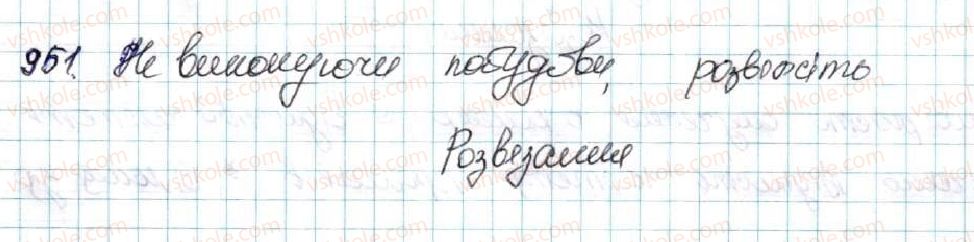 951. Не виконуючи побудови, розвяжіть
Розвязання